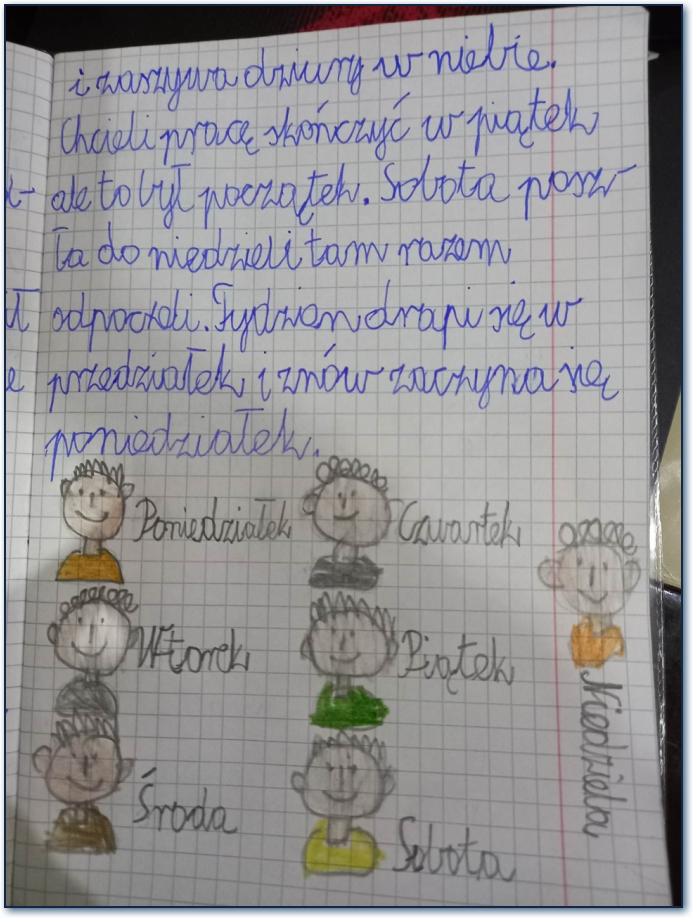 i zaszywa dziury w niebie.
Chcieli pracę skończyć w piątek
ale to był początek. Sobota posz-
ła do niedzieli tam razem
odpoczeli. Tydzien drapi się w
przedziałek i znów zaczyna się
poniedziałek.
Poniedziałek
Czwartek
Wtorek
Piątek
Środa
Sobota
Niedziela